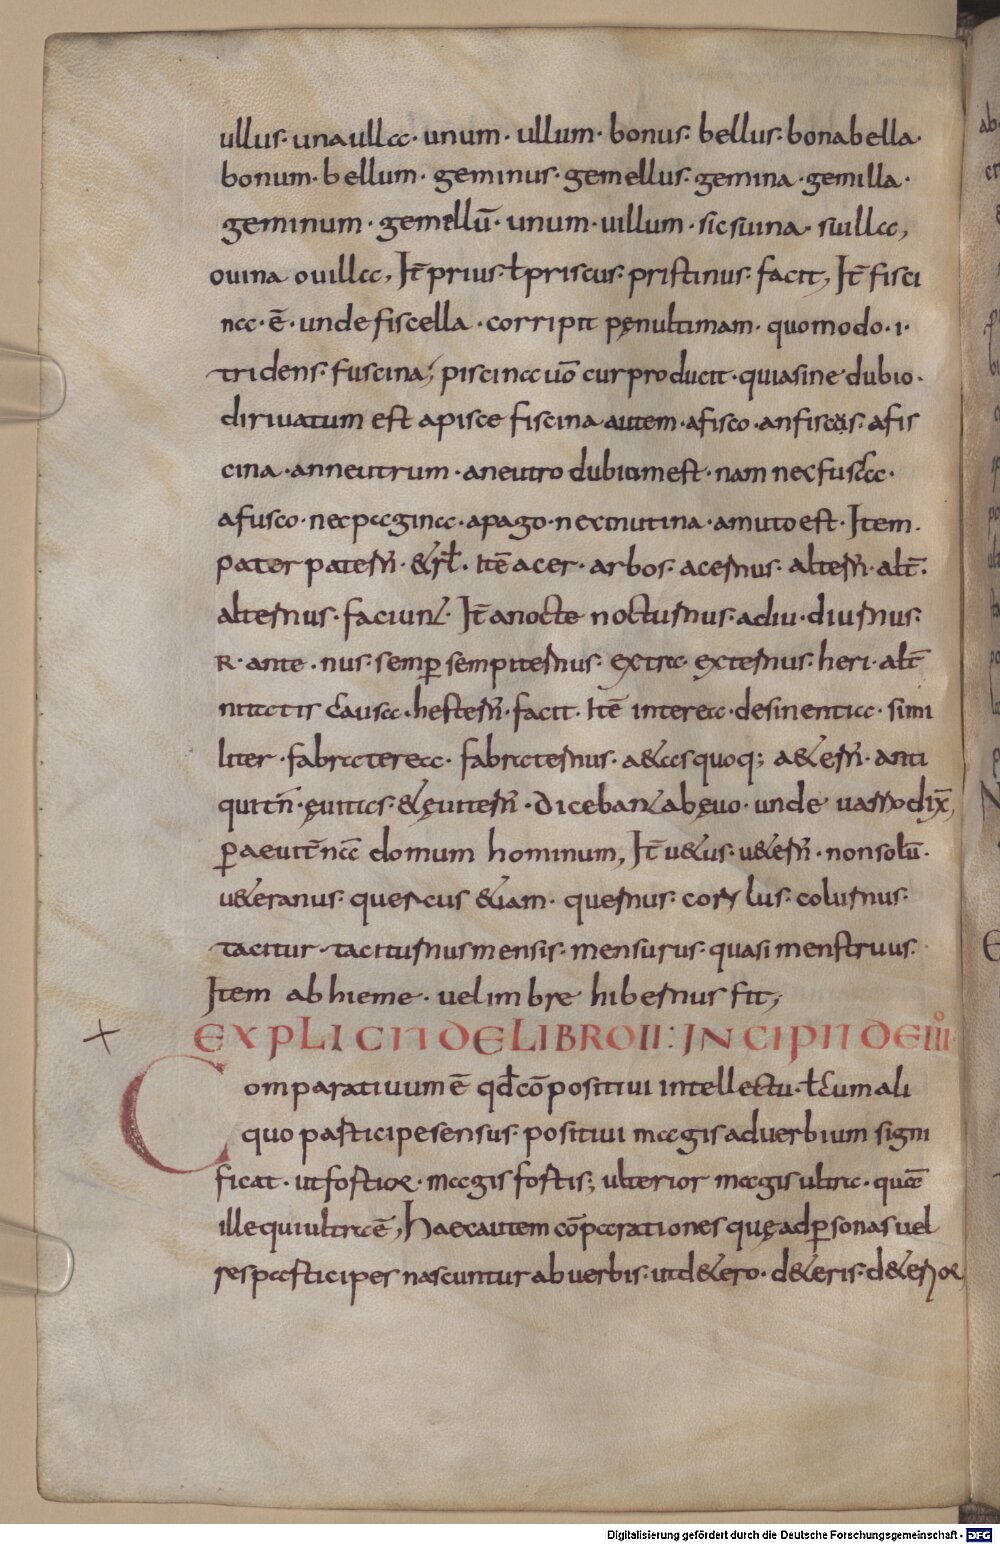 ullus· una ulla· unum· ullum· bonus· bellus· bona bella·
bonum· bellum· geminus· gemellus· gemina· gemilla·
geminum· gemellū· unum· uillum· sic suina· suilla,
ouina ouilla, Itē prius· ł priscus· pristinus· facit, Itē fisci
na· ē· unde fiscella· corripit pęnultimam· quomodo· i·
tridens· fuscina; piscina uō cur producit· quia sine dubio·
diriuatum est apisce fiscina autem· afisco· anfiscus· afis
cina· anneutrum· aneutro dubium est· nam nec fusca·
afusco· nec pagina· apago· nec mutina· amuto est· Item·
pater patern̄· &rł· Itē acer· arbos· acernus· altern̄· alt̄·
alternus· faciunt· Itē anocte nocturnus· adiu· diurnus·
R· ante· nus· semp̄ sempiternus· extra· externus· heri· alt̄
nitatis causa· hestern̄· facit· Itē in terea· desinentia· simi
liter· fabraterea· fabraternus· a&as quoq; a&ern̄· anti
quit̄n· ęuitas· &ęuitern̄· Dicebant abęuo· unde uarro dix̄,
p̄ aeuit̄na domum hominum, Itē u&us· u&ern̄· non solū·
u&eranus· quercus &iam· quernus· corylus· colurnus·
tacitur· taciturnus mensis· mensurus· quasi menstruus·
Item abhieme· uel imbre hibernus fit,
EXPLICIT DE LIBRO II: INCIPIT DE III
Comparatiuum ē qd̄ cōpositiui intellectu· ł cum ali
quo participe sensus· positiui magis aduerbium signi
ficat· ut fortior· magis fortis; ulterior magis ultra· quā
ille qui ultra ē, Haec autem cōparationes quę ad p̄sonas uel
res participes nascuntur ab uerbis· ut d&ero· d&eris· d&erior,